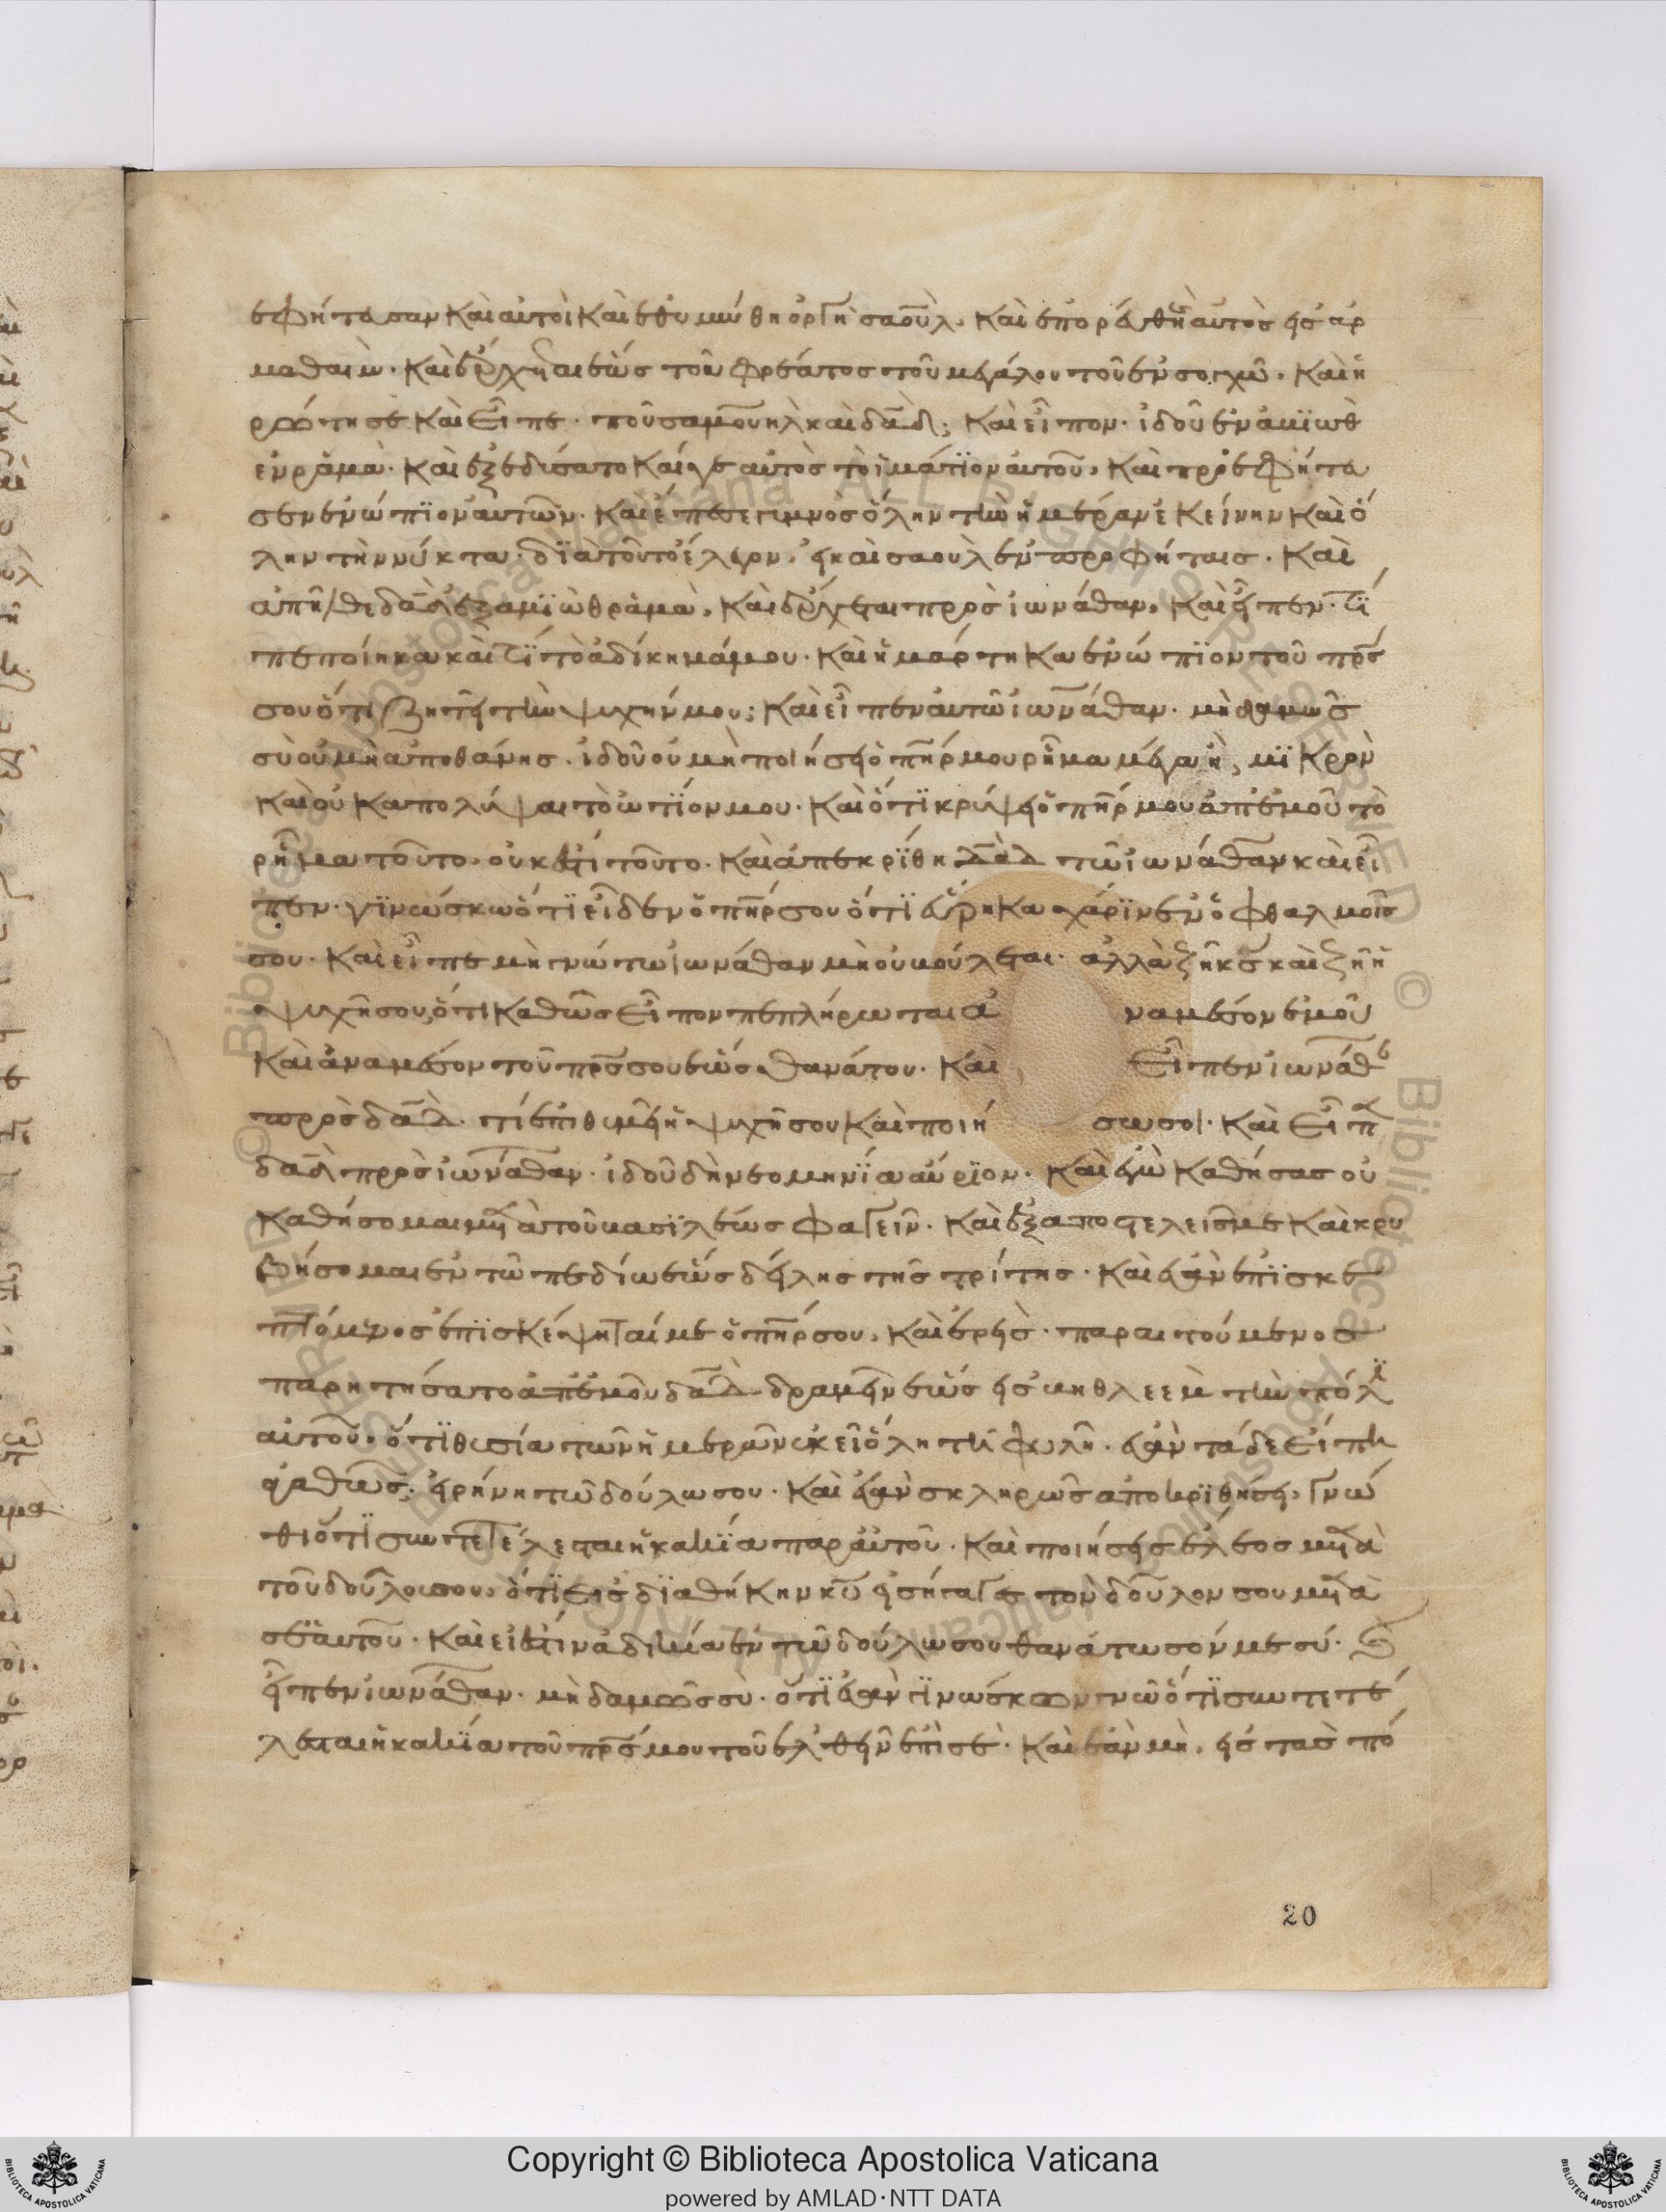 εφήτευσαν καὶ αὐτοὶ καὶ ἐθυμώθη ὀργῆ σαοὺλ, καὶ ἐπορεύθη καὶ αὐτὸς εἰς ἀρ
μαθαὶμ. καὶ ἔρχεται ἕως τοῦ φρέατος τοῦ μεγάλου τοῦ ἐν σοχῶ. καὶ ἠ
ρώτησε καὶ εἶπε. ποῦ σαμουὴλ καὶ δαδ; καὶ εἶπον. ἰδοῦ ἐν αυϊωθ
ἐν ραμὰ. καὶ ἐξεδύσατο καί γε αὐτὸς τὸ ἱμάτϊον αὐτοῦ, καὶ προεφήτευ
σεν ἐνώπϊον αὐτῶν. καὶ ἔπεσε γυμνὸς ὅλην τὴν ἡμέραν ἐκείνην καὶ ὅ
λην τὴν νύκτα. δϊὰ τοῦτο ἔλεγον, εἰ καὶ σαοὺλ ἐν προφήταις. καὶ
ἀπῆλθε δαδ ἐξ αυϊὼθ ραμὰ, καὶ ἔρχεται πρὸς ἰωνάθαν, καὶ εἶπεν. τΐ
πεποίηκα καὶ τΐ τὸ ἀδίκημά μου. καὶ ἡμάρτηκα ἐνώπϊον τοῦ πρς
σου ὅτι ζητεῖ τὴν ψυχήν μου; καὶ εἶπεν αὐτῶ ἰωνάθαν. μηδαμῶς
σὺ οὐ μὴ ἀποθάνης. ἰδοῦ οὐ μὴ ποιήσει ὁ πηρ μου ρῆμα μέγα ἢ μϊκρὸν
καὶ οὐκ ἀποκαλύψαι τὸ ὠτΐον μου. καὶ ὅτϊ κρύψει ὁ πηρ μου ἀπ' ἐμοῦ τὸ
ρῆμα τοῦτο, οὐκ ἔστι τοῦτο. καὶ ἀπεκρΐθη δαδ τῶ ἰωνάθαν καὶ εἶ
πεν. γϊνώσκω ὅτϊ εἶδεν ὁ πηρ σου ὅτϊ εὕρηκα χάρϊν ἐν ὀφθαλμοῖς
σου. καὶ εἶπε μὴ γνώτω ἰωνάθαν μὴ οὐ βούλεται. ἀλλὰ ζῆ κς καὶ ζῆ ἡ
ψυχῆ σου, ὅτι καθὼς εἶπον πεπλήρωται ἀ ναμέσον ἐμοῦ
καὶ ἀναμέσον τοῦ πρς σου ἕως θανάτου. καὶ εἶπεν ἰωνάθ
πρὸς δαδ. τί ἐπιθυμεῖ ἡ ψυχῆ σου καὶ ποιή σω σοι. καὶ εἶπ
δαδ πρὸς ἰωνάθαν. ἰδοῦ δὴ νεομηνΐα αὔρϊον. καὶ ἐγὼ καθήσας οὐ
καθήσομαι μετὰ τοῦ βασϊλέως φαγεῖν. καὶ ἐξαποστελεῖς με καὶ κρυ
βήσομαι ἐν τῶ πεδίω ἕως δείλης τῆς τρίτης. καὶ ἐὰν ἐπϊσκε
πτόμενος ἐπϊσκέψηταί με ὁ πηρ σου, καὶ ἐρεῖς. παραιτούμενος
παρητήσατο ἀπ' ἐμοῦ δαδ δραμεῖν ἕως εἰς βηθλεεὲμ τὴν πόλϊ
αὐτοῦ, ὅτϊ θυσία τῶν ἡμερῶν ἐκεῖ ὅλη τῆ φυλῆ. ἐὰν τάδε εἴπη
ἀγαθῶς, εἰρήνη τῶ δούλω σου. καὶ ἐὰν σκληρῶς ἀποκρϊθήσει, γνώ
θι ὅτϊ συντετέλεσται ἡ κακΐα παρ' αὐτοῦ. καὶ ποιήσεις ἔλεος μετὰ
τοῦ δούλου σου, ὅτϊ εἰς δϊαθήκην κυ εἰσήγαγες τὸν δοῦλον σου μετὰ
σεαυτοῦ. καὶ εἰ ἔστιν ἀδικία ἐν τῶ δούλω σου θανάτωσόν με σύ. καὶ
εἶπεν ἰωνάθαν. μηδαμῶς σὺ. ὅτϊ ἐὰν γϊνώσκων γνῶ ὅτϊ συντετέ
λεσται ἡ κακΐα τοῦ πρς μου τοῦ ἐλθεῖν ἐπὶ σὲ. καὶ ἐὰν μὴ, εἰς τὰς πό
20
Copyright © Biblioteca Apostolica Vaticana
powered by AMLAD·NTT DATA